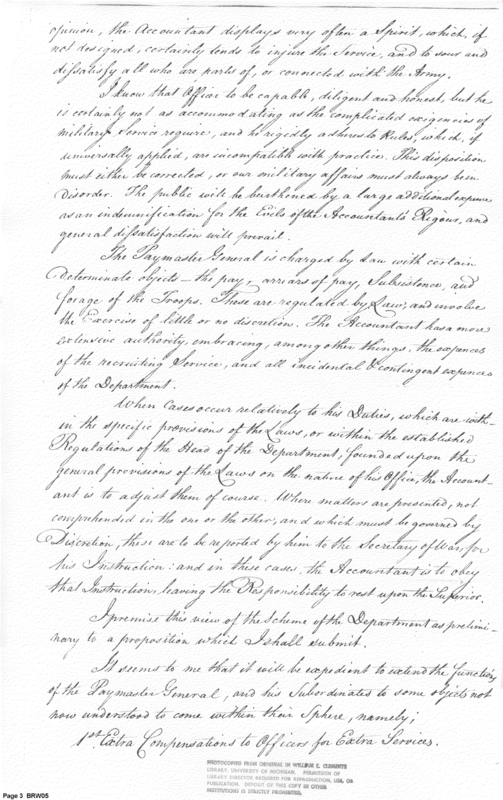 opinion, the Accountant displays very often a Spirit, which, if
not designed, certainly tends to injure the Service, and to sour and
dissatisfy all who are parts of, or connected with the Army.
I know that Officer to be capable, diligent and honest, but he
is certainly not as accommodating as the complicated exigencies of
military Service require, and he rigidly adheres to Rules, which, if
universally applied, are incompatible with practice. This disposition
must either be corrected, or our military affairs must always be in
Disorder. The public will be burthened by a large additional expence
as an indemnification for the Evils of the Accountants Rigour, and
general dissatisfaction will prevail.
The Paymaster General is charged by Law with certain
Determinate objects — the pay, arrears of pay, Subsistence, and
forage of the Troops. These are regulated by Law, and involve
the Exercise of little or no discretion. The Accountant has a more
extensive authority, embracing, among other things, the expences
of the recruiting Service, and all incidental & contingent expences
of the Department.
When Cases occur relatively to his Duties, which are with-
in the specific provisions of the Laws, or within the established
Regulations of the Head of the Department, founded upon the
general provisions of the Laws on the nature of his Office, the Account-
ant is to adjust them of course. Where matters are presented, not
comprehended in the one or the other, and which must be governed by
Discretion, these are to be reported by him to the Secretary of War, for
his Instruction: and in these cases, the Accountant is to obey
that Instruction, leaving the Responsibility to rest upon the Superior.
I premise this view of the Scheme of the Department as prelimi-
nary to a proposition which I shall submit.
It seems to me that it will be expedient to extend the functions
of the Paymaster General, and his Subordinates to some objects not
now understood to come within their Sphere, namely;
1st. Extra Compensations to Officers for Extra Services.
PHOTOCOPIED FROM ORIGINAL IN WILLIAM L. CLEMENTS
LIBRARY, UNIVERSITY OF MICHIGAN. PERMISSION OF
LIBRARY DIRECTOR REQUIRED FOR REPRODUCTION, USE, OR
PUBLICATION. DEPOSIT OF THIS COPY IN OTHER
INSTITUTIONS IS STRICTLY PROHIBITED.
Page 3 BRW05